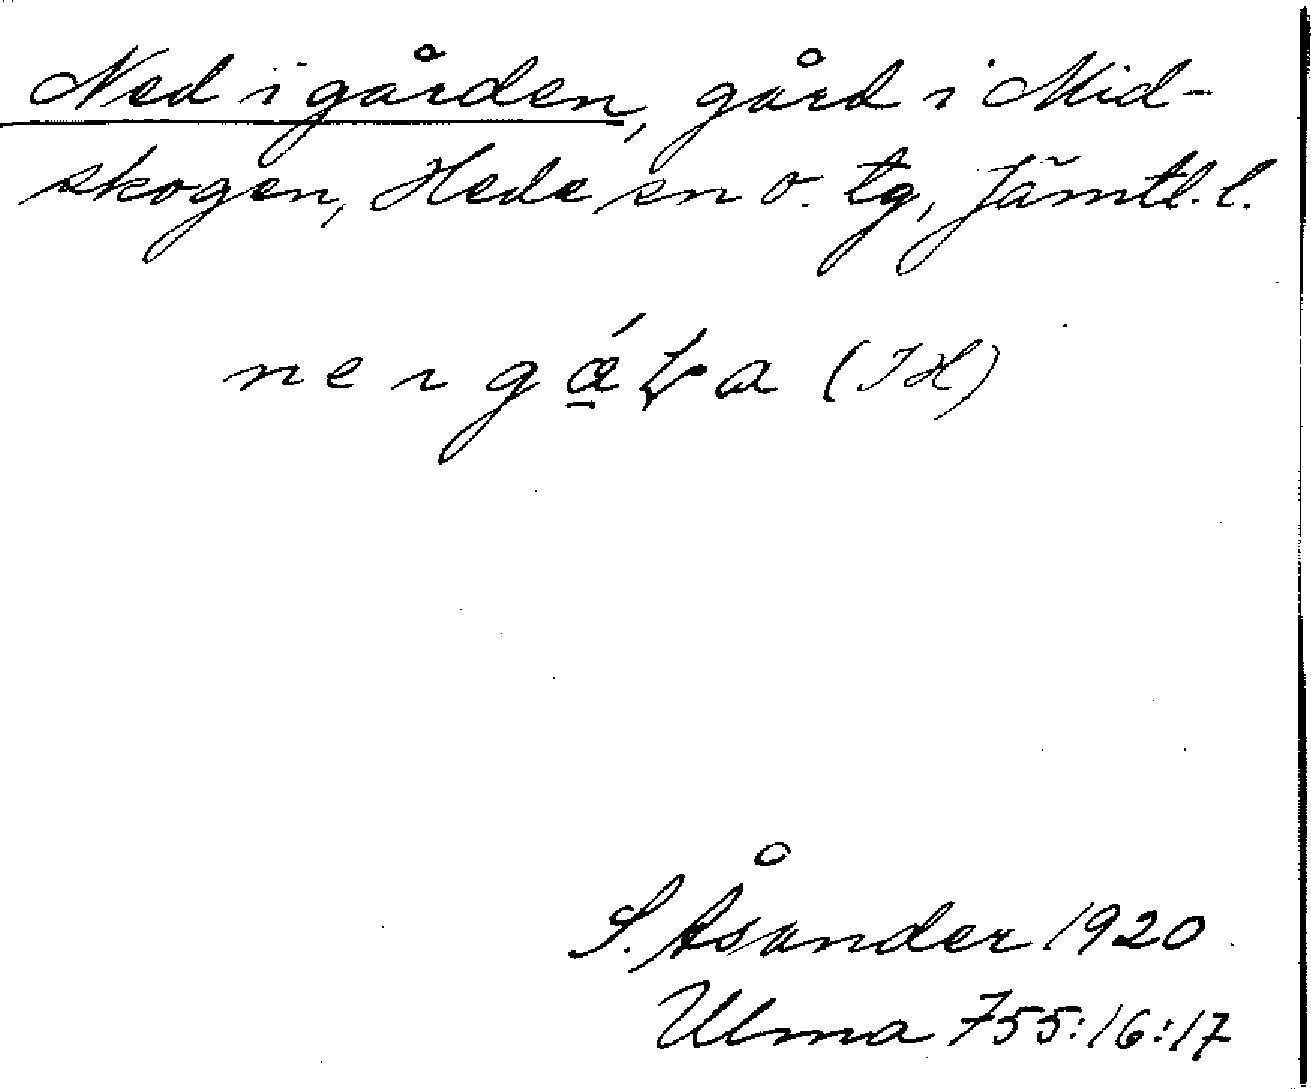 Ned i gården, gård i Mid-
skogen, Hede sn o. tg, Jämtl. l.
(JH)
S. Åsander 1920
Ulma 755:16:17